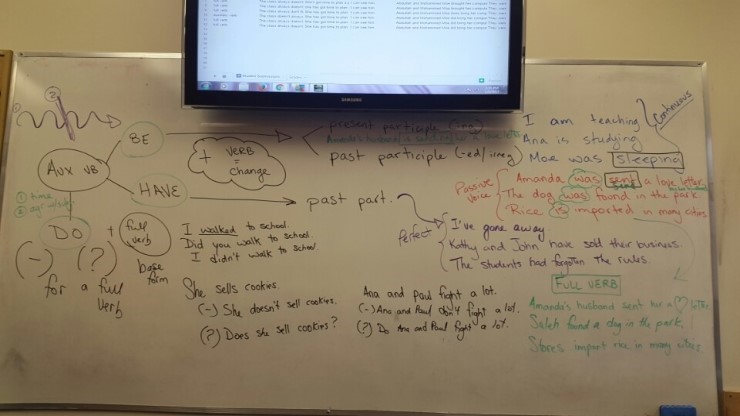 SAMSUNG
②
①
AUX VB
① time
②
BE
HAVE
DO
+ VERB = change
present participle (ing)
Amanda's husband is
past participle (-ed/irreg)
past part.
+ full verb
base form
(-) (?)
for a full verb
I walked to school.
Did you walk to school.
I didn't walk to school.
She sells cookies.
(-) She doesn't sell cookies.
(?) Does she sell cookies?
Ana and Paul fight a lot.
(-) Ana and Paul don't fight a lot.
(?) Do Ana and Paul fight a lot.
I am teaching
Ana is studying
Moe was sleeping
Continuous
Passive Voice
Amanda was sent a love letter
The dog was found in the park.
Rice is imported in many cities.
Perfect
I've gone away
Kathy and John have sold their business.
The students had forgotten the rules.
FULL VERB
Amanda's husband sent her a ♡ letter.
Saleh found a dog in the park.
Stores import rice in many cities.